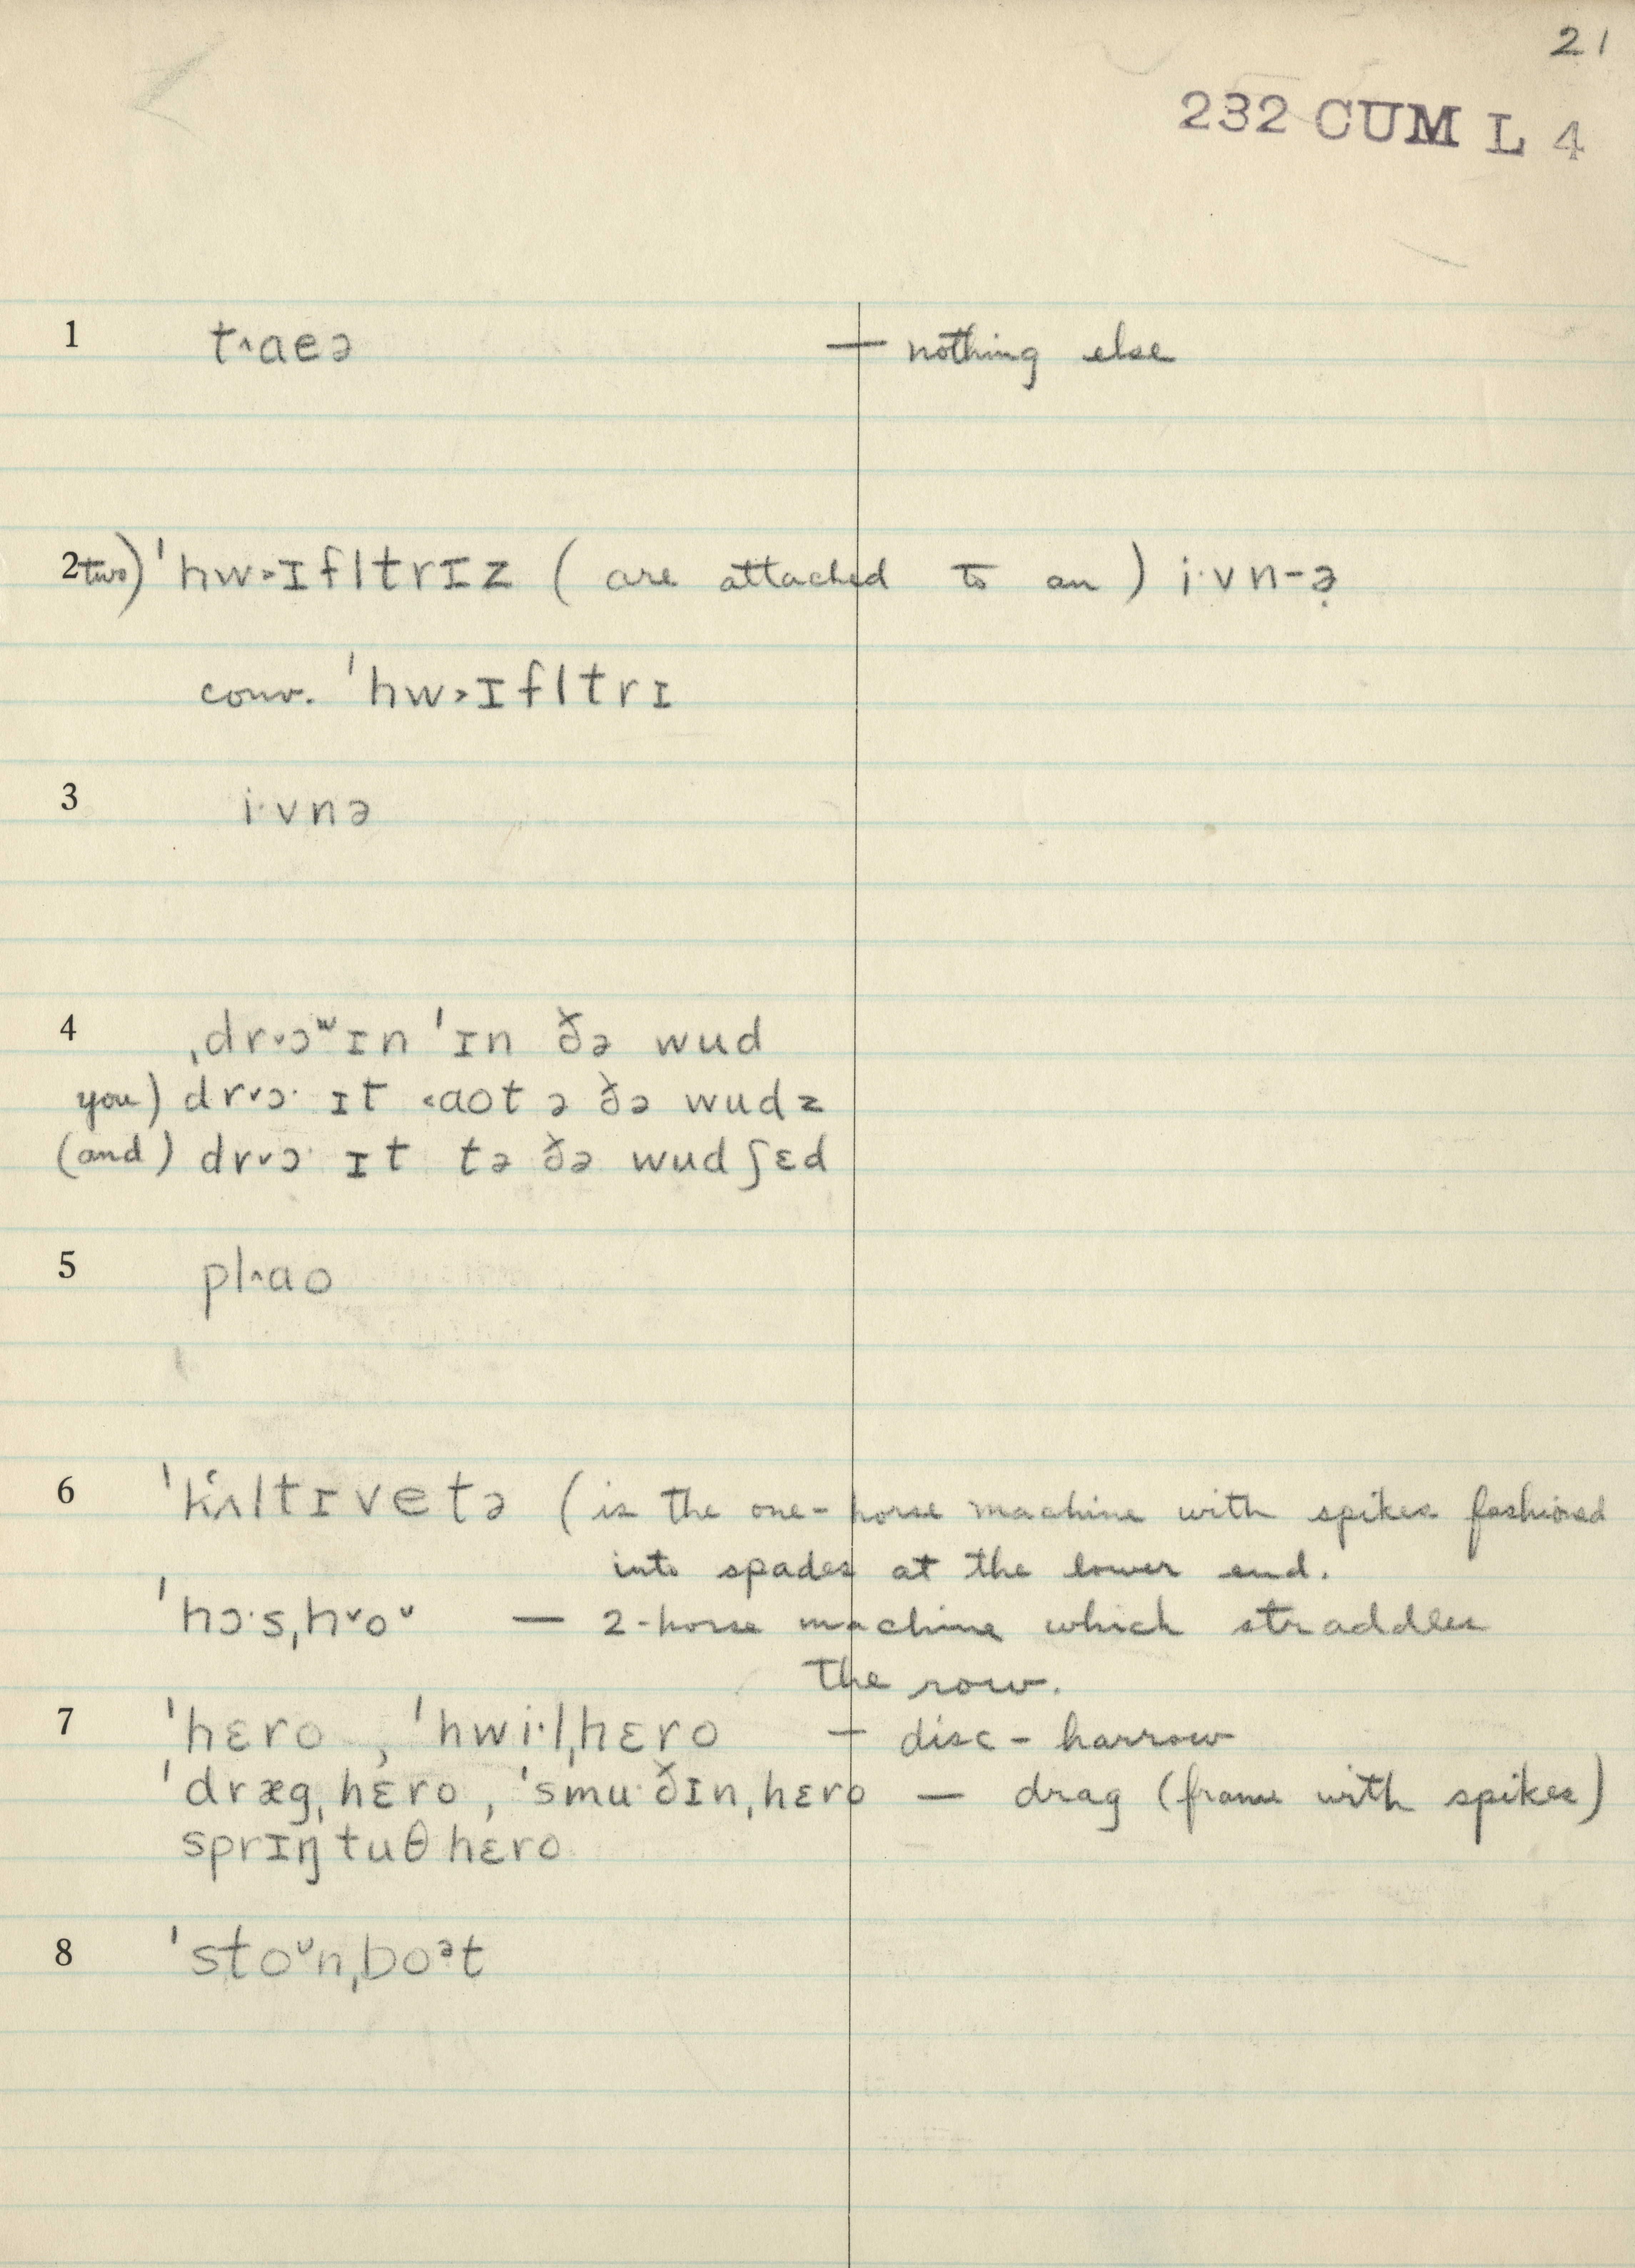 21
232 CUM L 4
1 t˄aeə — nothing else
2 two) ˈhw˃ɪfltrɪz (are attached to an) i·vn-ə̣
conv. ˈhw˃ɪfltrɪ
3 i·vnə
4 ˌdr˅ɔʷɪn ˈɪn ðə wud
you) dr˅ɔ· ɪt ˂aot ə ðə wudz
(and) dr˅ɔ· ɪt tə ðə wudʃɛd
5 pl˄ao
6 ˈkʻʌltɪvetə (is the one-horse machine with spikes fashioned
into spades at the lower end.
ˈhɔ·sˌh˅oᵛ — 2-horse machine which straddles
the row.
7 ˈhɛro , ˈhwi·lˌhɛro — disc-harrow
ˈdrægˌhɛro , ˈsmu·ðɪnˌhɛro — drag (frame with spikes)
sprɪŋtuθhɛro
8 ˈstoᵛnˌboᵊt